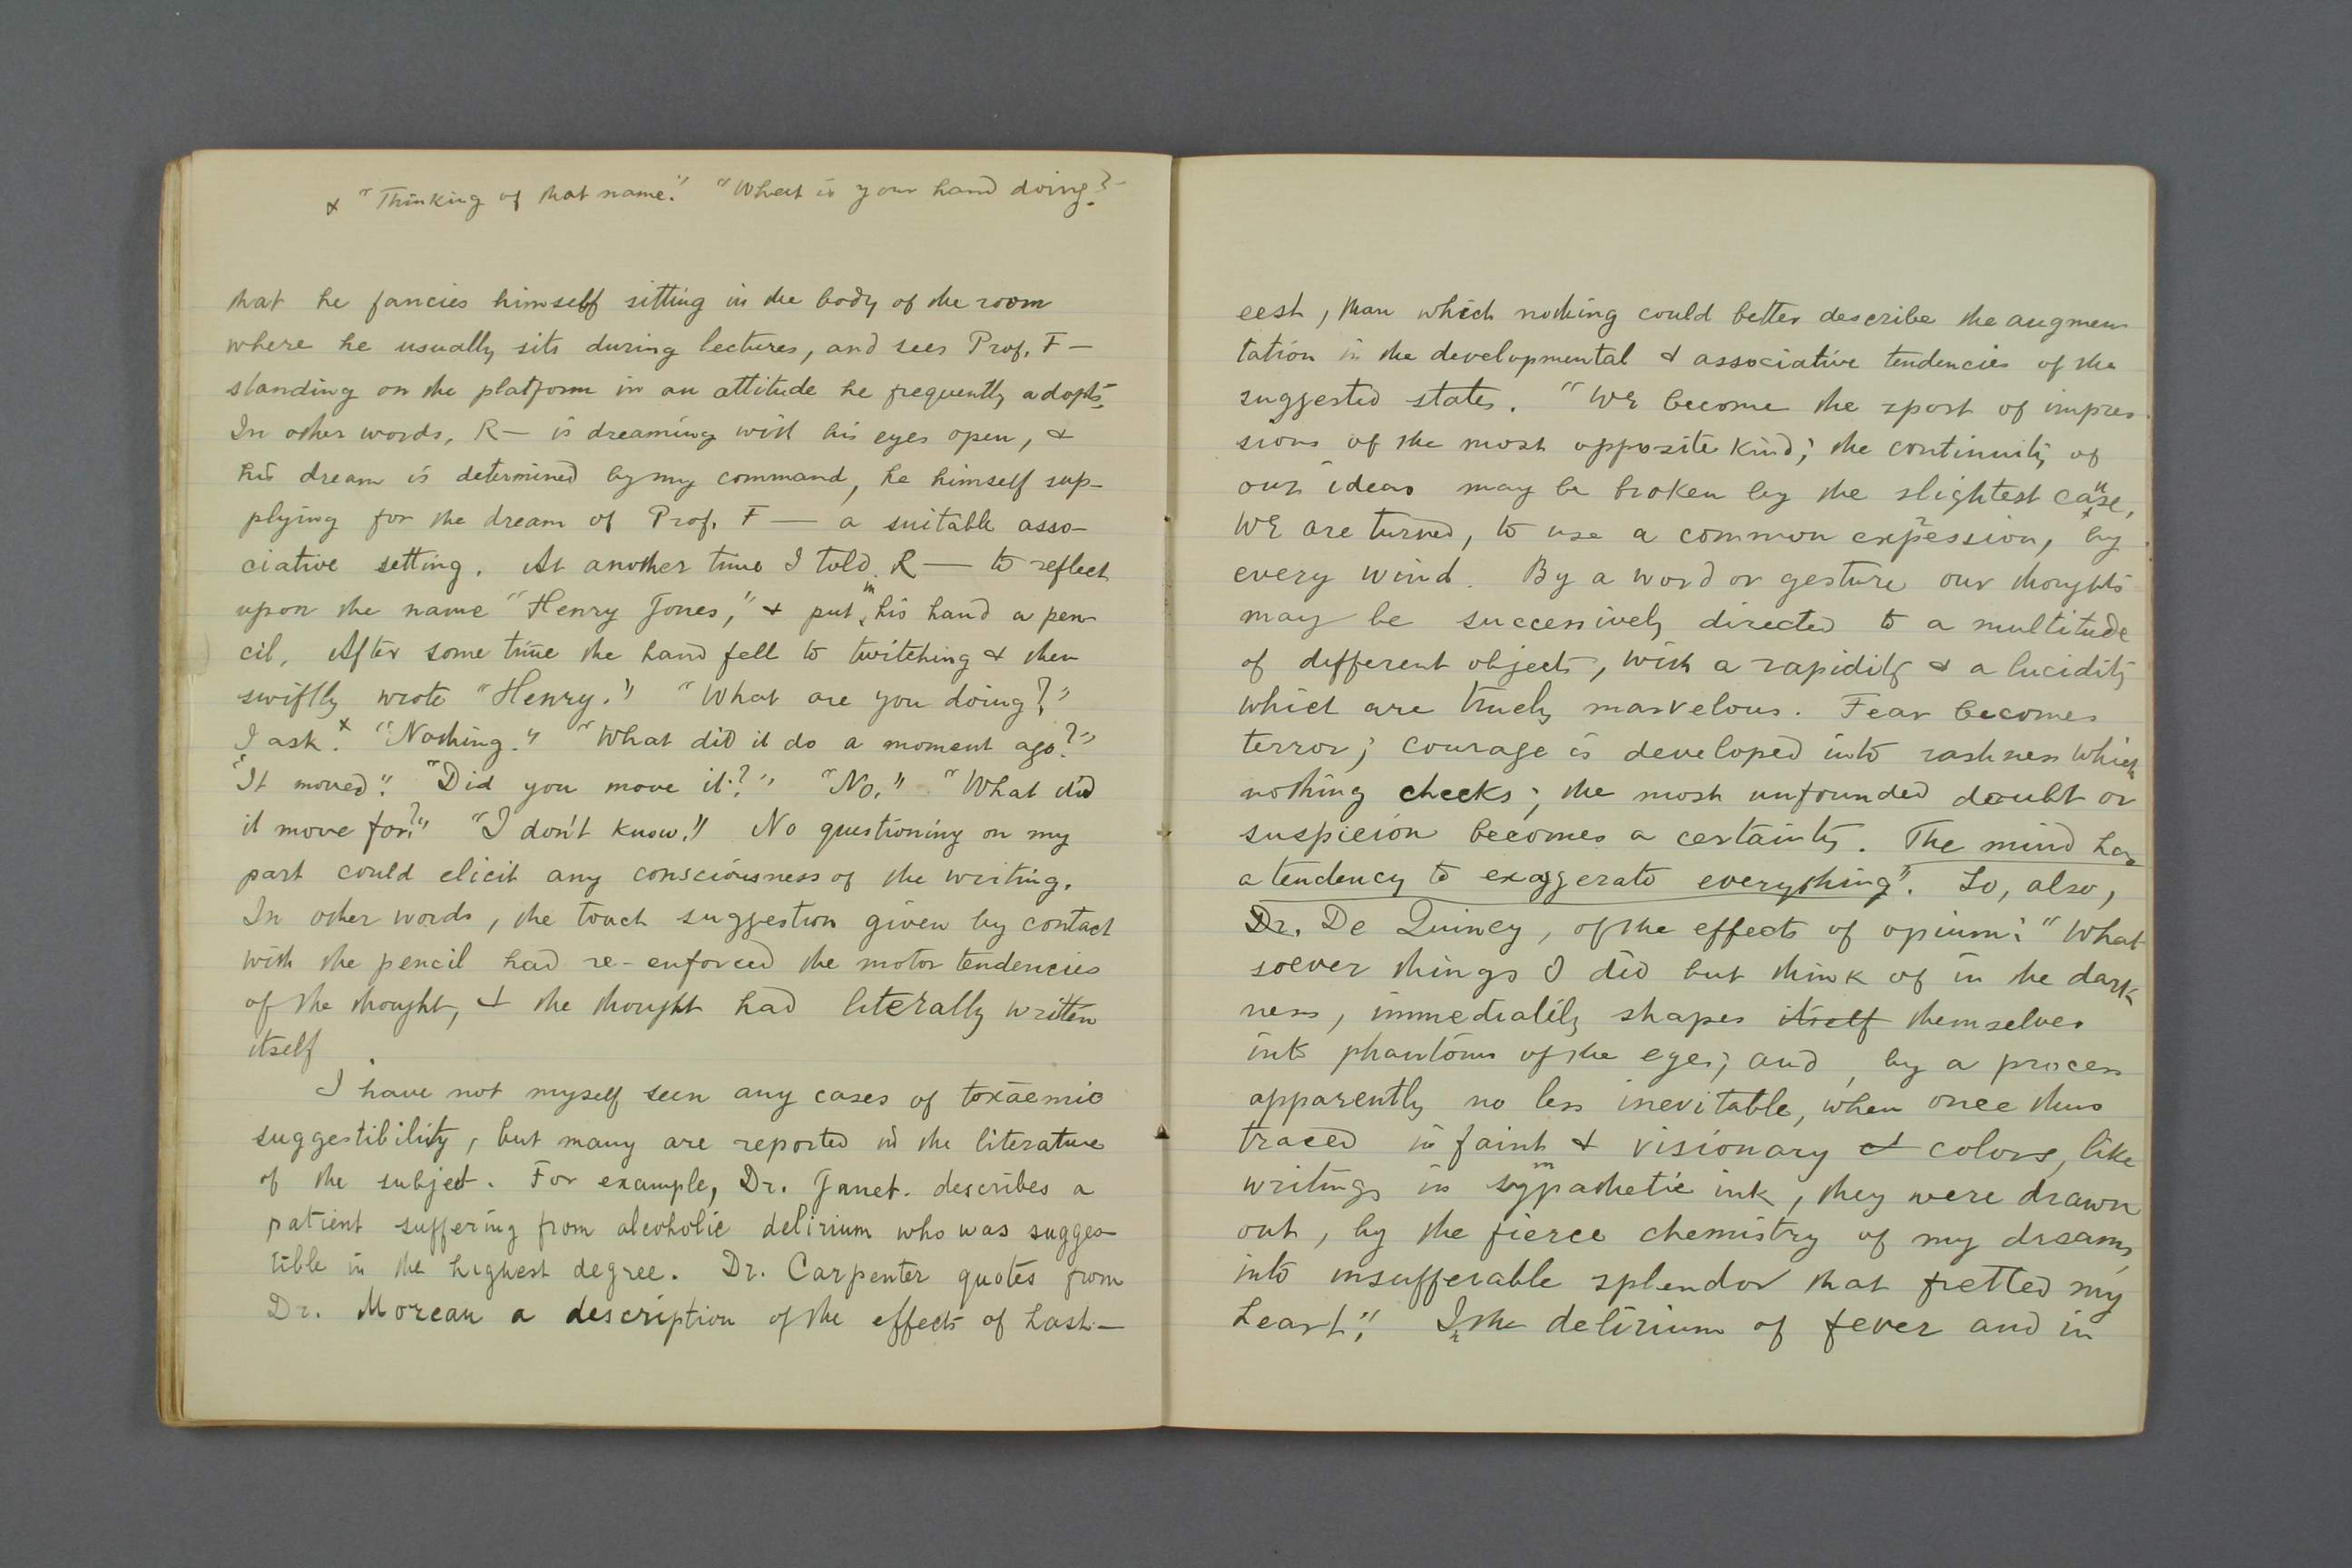 x "Thinking of that name." "What is your hand doing?"
that he fancies himself sitting in the body of the room
where he usually sits during lectures, and sees Prof. F—
standing on the platform in an attitude he frequently adopts.
In other words, R— is dreaming with his eyes open, &
his dream is determined by my command, he himself sup-
plying for the dream of Prof. F— a suitable asso-
ciative setting. At another time I told R— to reflect
upon the name "Henry Jones," & put in his hand a pen-
cil, After some time the hand fell to twitching & then
swiftly wrote "Henry." "What are you doing?"
I ask. x "Nothing." "What did it do a moment ago?"
"It moved." "Did you move it?" "No." "What did
it move for?" "I don't know." No questioning on my
part could elicit any consciousness of the writing.
In other words, the touch suggestion given by contact
with the pencil had re-enforced the motor tendencies
of the thought, & the thought had literally written
itself.
I have not myself seen any cases of toxaemic
suggestibility, but many are reported in the literature
of the subject. For example, Dr. Janet. describes a
patient suffering from alcoholic delirium who was sugges-
tible in the highest degree. Dr. Carpenter quotes from
Dr. Moreau a description of the effects of hash-
eesh, than which nothing could better describe the augmen
tation in the developmental & associative tendencies of the
suggested states. "We become the sport of impres-
sions of the most opposite kind; the continuity of
our ideas may be broken by the slightest cause,
We are turned, to use a common expression, by
every wind. By a word or gesture our thoughts
may be successively directed to a multitude
of different objects, with a rapidity & a lucidity
which are truely marvelous. Fear becomes
terror; courage is developed into rashness which
nothing checks; the most unfounded doubt or
suspicion becomes a certainty. The mind has
a tendency to exaggerate everything". So, also,
Dr. De Quincy, of the effects of opium: "What
soever things I did but think of in the dark-
ness, immediatily shapes itself themselves
into phantoms of the eye; and, by a process
apparently no less inevitable, when once thus
traced in faint & visionary & colors, like
writings in sympathetic ink, they were drawn
out, by the fierce chemistry of my dreams,
into insufferable splendor that fretted my
heart." In the delirium of fever and in